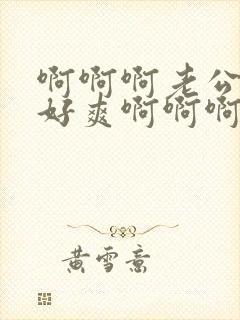 啊啊啊老公
好爽啊啊啊
黄雪意